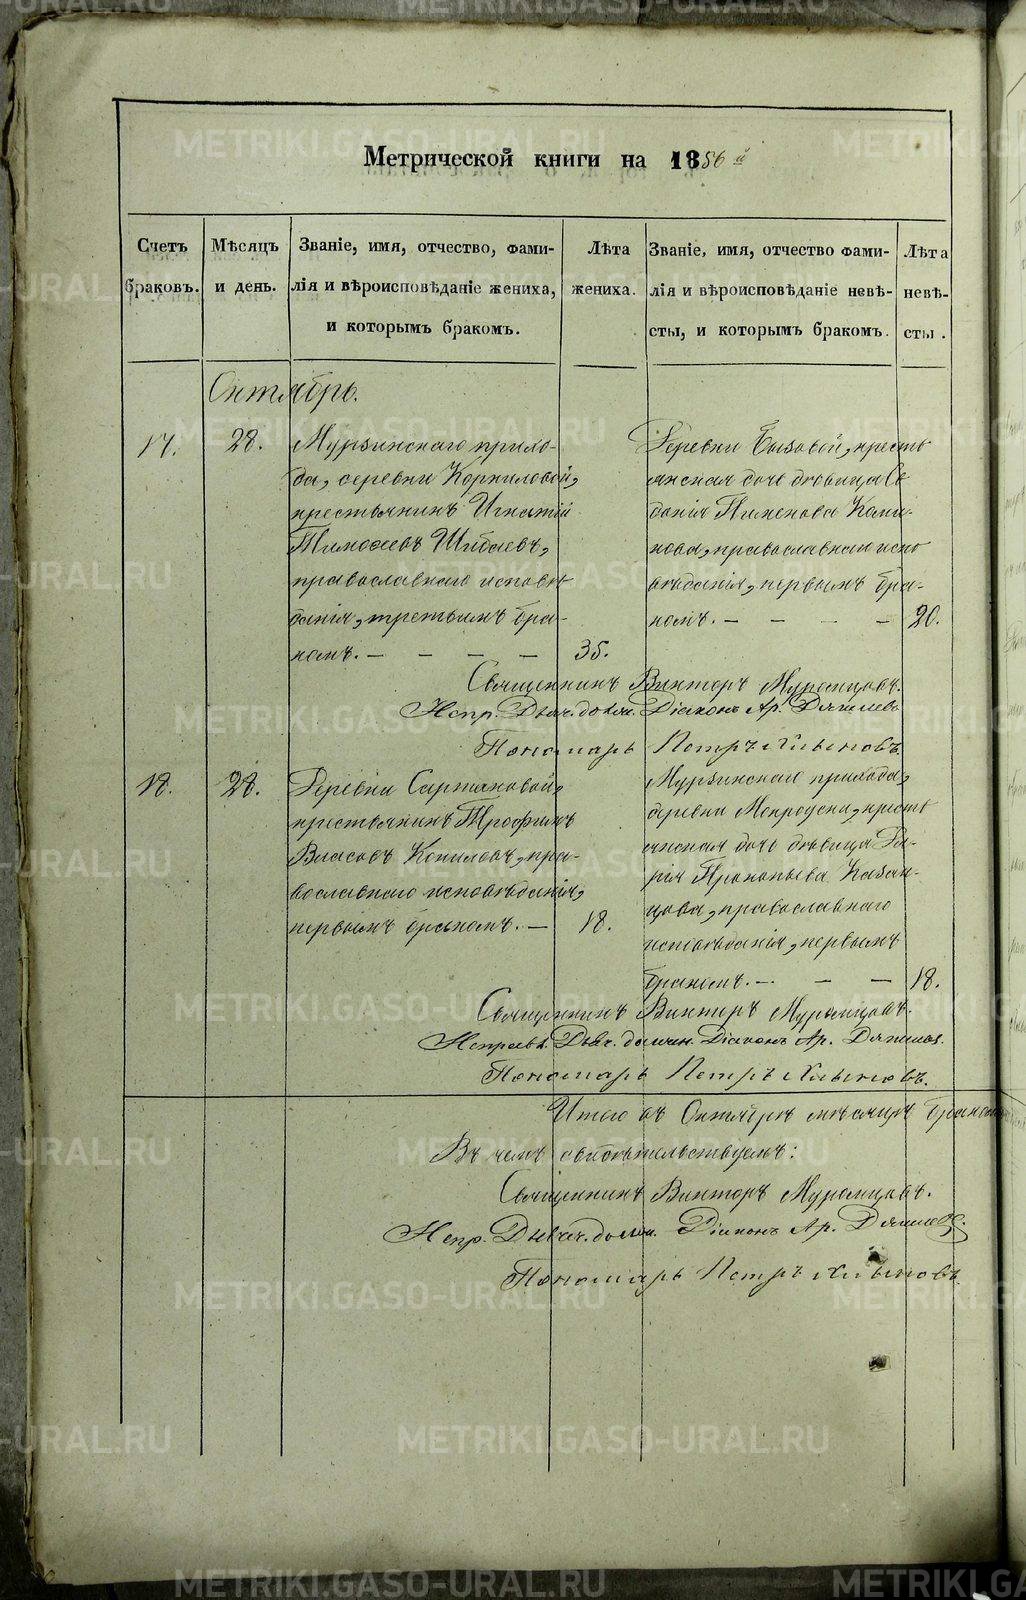 METRIKI.GASO-URAL.RU
Метрической книги на 1856й
Счетъ браковъ.
Мѣсяцъ и день.
Званіе, имя, отчество, фами-
лія и вѣроисповѣданіе жениха,
и которымъ бракомъ.
Лѣта жениха.
Званіе, имя, отчество фами-
лія и вѣроисповѣданіе невѣ-
сты, и которымъ бракомъ.
Лѣта невѣ-
сты.
Октябрь.
17. 28.
Мурзинскаго прихо-
да, деревни Корниловой,
крестьянинъ Игнатій
Тимофеевъ Шибаевъ,
православнаго исповѣ
данія, третьимъ бра-
комъ. — — — — 35.
Деревни Бызовой, кресть
янская дочь дѣвица
Пименова
православнаго испо
вѣданія, первымъ бра-
комъ. — — — — 20.
Священникъ Викторъ Муромцовъ.
Испр. Дьяч. долж. Діаконъ Ар. Дягилевъ
Пономарь Петръ Хлыновъ.
18. 28.
Деревни
крестьянинъ Трофимъ
Власовъ Копыловъ, пра-
вославнаго исповѣданія,
первымъ бракомъ. — 18.
Мурзинскаго прихода,
деревни Мокроуски, кресть
янская дочь дѣвица Да-
рія Прокопьева Казан-
цова, православнаго
исповѣданія, первымъ
бракомъ. — — — 18.
Священникъ Викторъ Муромцовъ.
Исправл. Дьяч. должн. Діаконъ Ар. Дягилев.
Пономарь Петръ Хлыновъ.
Итого въ Октябрѣ мѣсяцѣ
Въ чемъ свидѣтельствуемъ:
Священникъ Викторъ Муромцовъ.
Испр. Дьяч. долж. Діаконъ Ар. Дягилевъ.
Пономарь Петръ Хлыновъ.